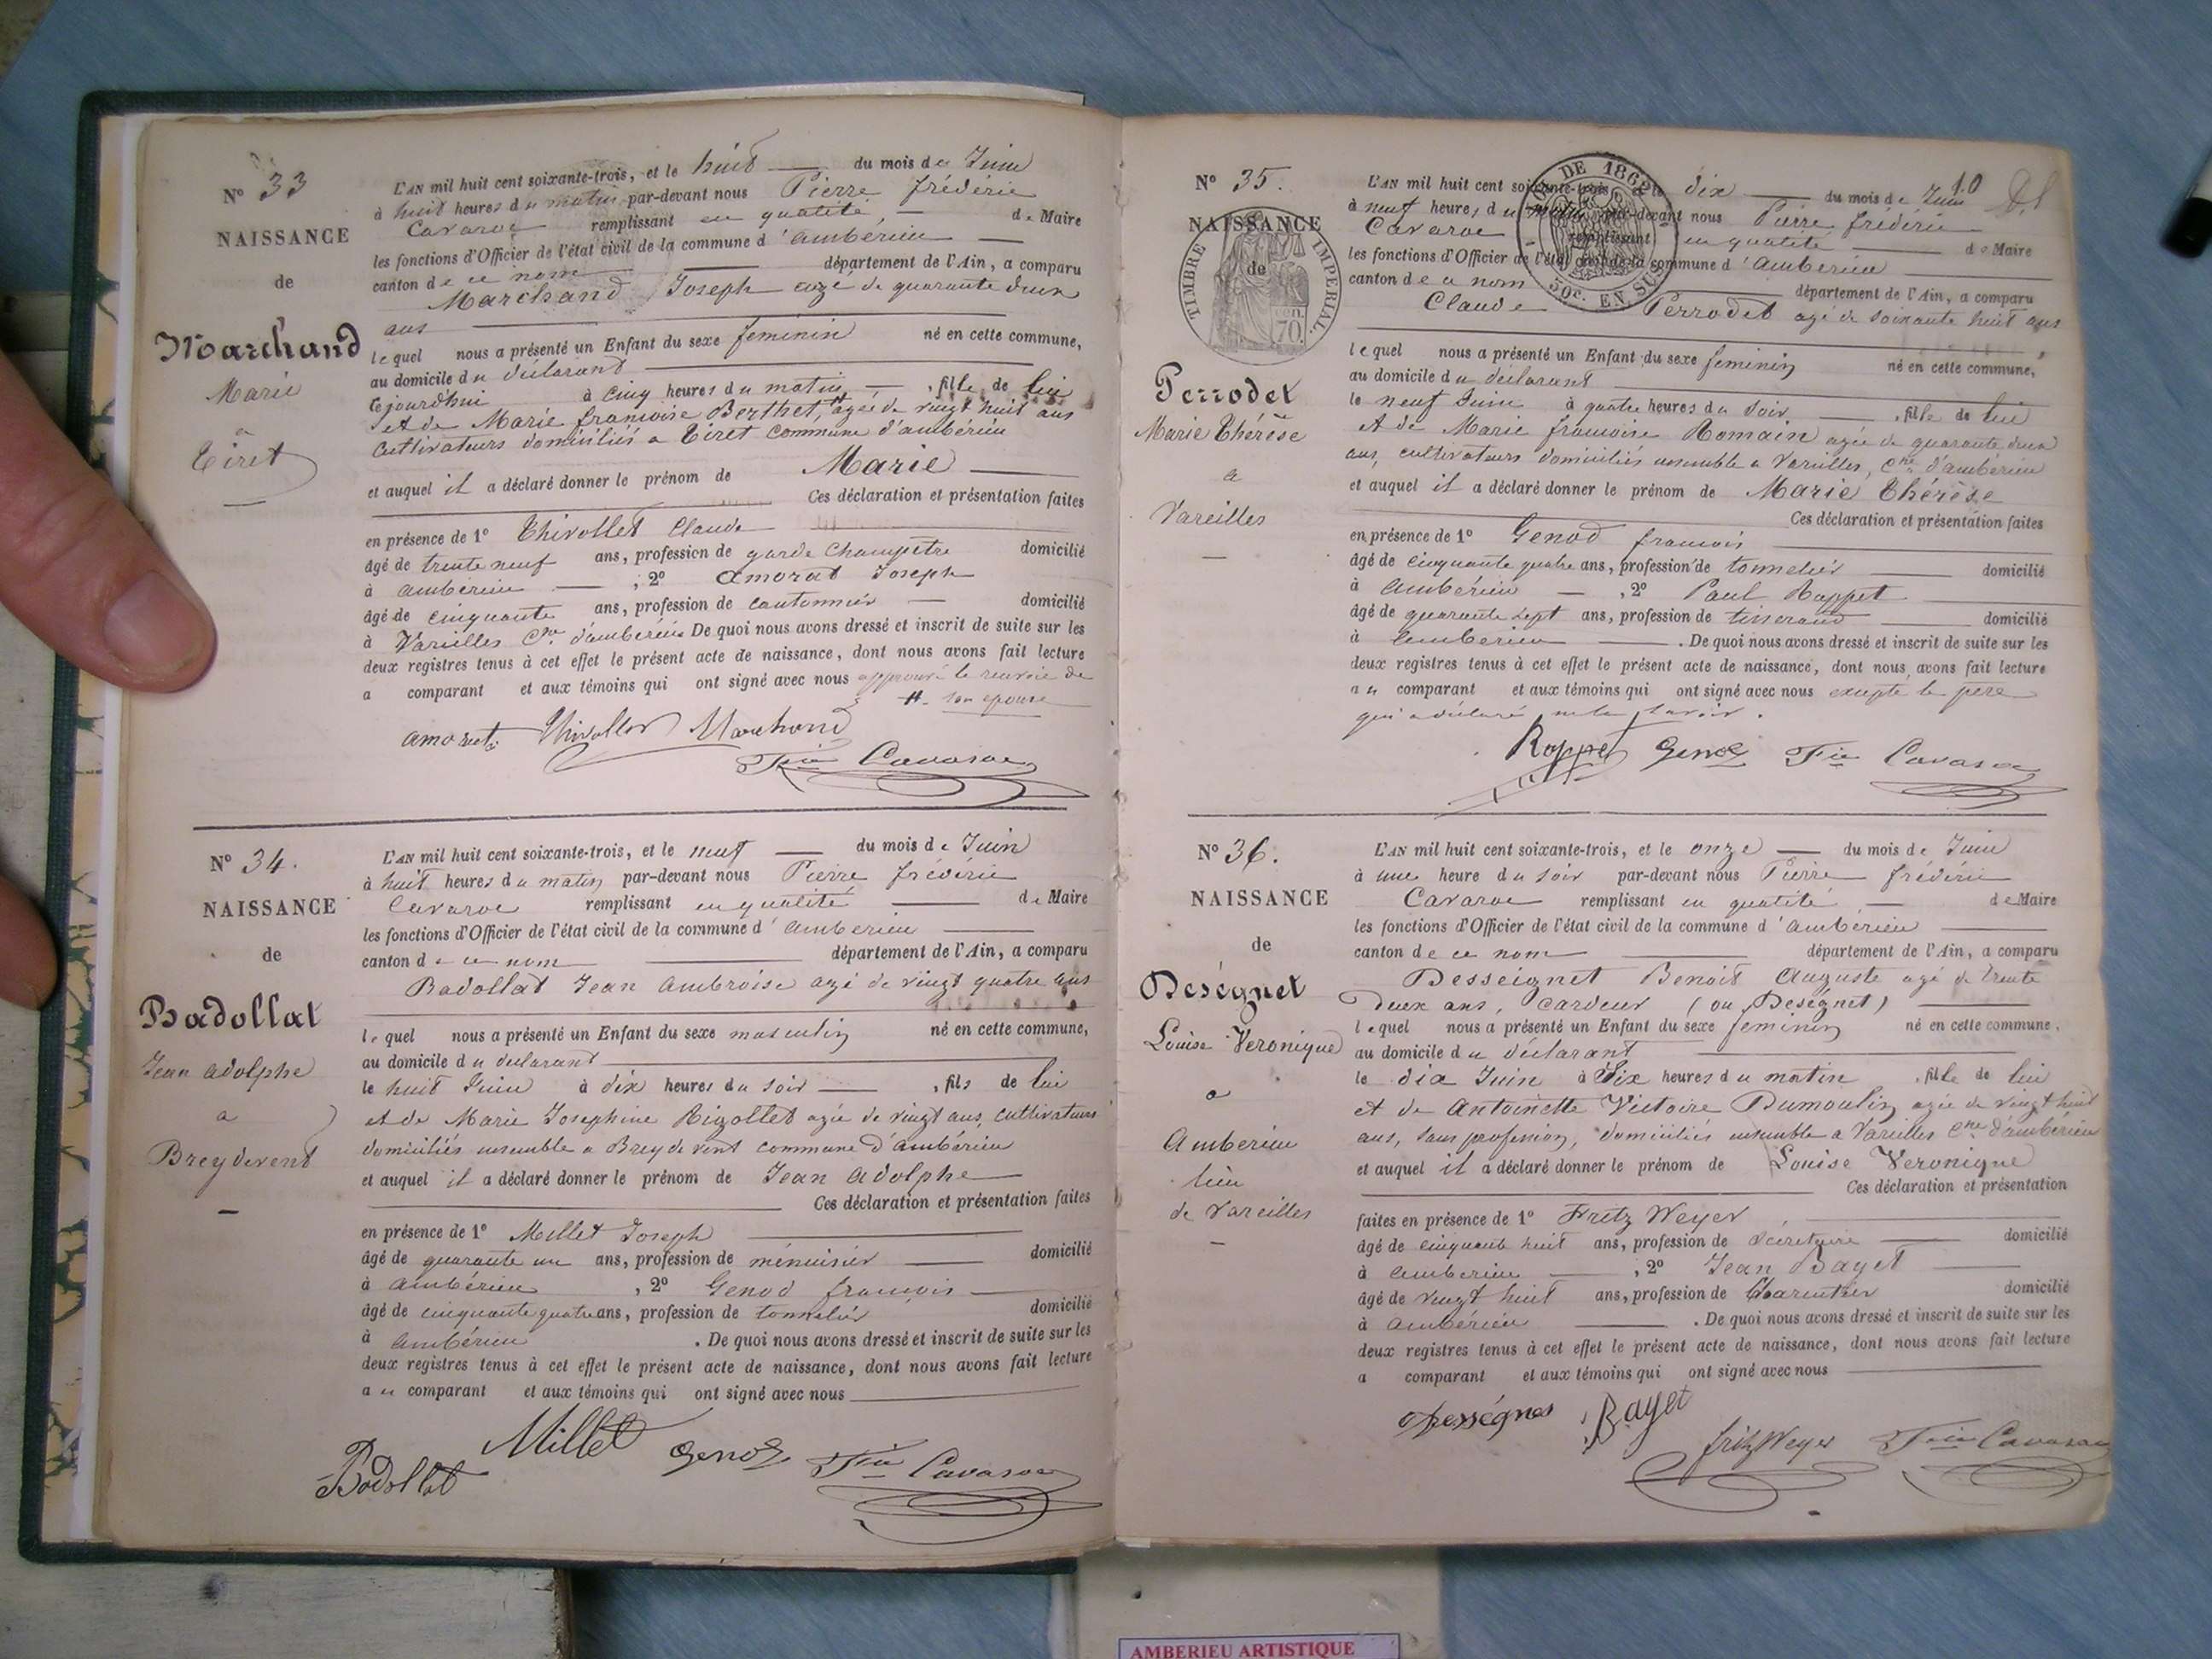 N° 33
NAISSANCE
de
Marchand
Marie
a
Tiret
L'AN mil huit cent soixante-trois, et le huit du mois de Juin
à huit heures du matin par-devant nous Pierre fréderic
Cavaroc remplissant en qualité de Maire
les fonctions d'Officier de l'état civil de la commune d'ambérieu
canton de ce nom département de l'Ain, a comparu
Marchand Joseph agé de quarante deux
ans
lequel nous a présenté un Enfant du sexe feminin né en cette commune,
au domicile du déclarant
cejourdhui à cinq heures du matin, fille de lui
et de Marie francoise Berthet, # agée de vingt huit ans
cultivateurs domiciliés a Tiret commune d'ambérieu
et auquel il a déclaré donner le prénom de Marie
Ces déclaration et présentation faites
en présence de 1° Thivollet Claude
âgé de trente neuf ans, profession de garde champêtre domicilié
à ambérieu ; 2° Amorat Joseph
âgé de cinquante ans, profession de cantonnier domicilié
à Vareilles Cne d'ambérieu De quoi nous avons dressé et inscrit de suite sur les
deux registres tenus à cet effet le présent acte de naissance, dont nous avons fait lecture
a comparant et aux témoins qui ont signé avec nous approuvé le renvoie de
# son epouse
amorat Thivollet Marchand
Fic Cavaroc
N° 34.
NAISSANCE
de
Badollat
Jean adolphe
a
Breydevent
L'AN mil huit cent soixante-trois, et le neuf du mois de Juin
à huit heures du matin par-devant nous Pierre fréderic
Cavaroc remplissant en qualité de Maire
les fonctions d'Officier de l'état civil de la commune d'ambérieu
canton de ce nom département de l'Ain, a comparu
Badollat Jean Ambroise agé de vingt quatre ans
lequel nous a présenté un Enfant du sexe masculin né en cette commune,
au domicile du declarant
le huit Juin à dix heures du soir, fils de lui
et de Marie Josephine Rigollet agée de vingt ans, cultivateurs
domiciliés ensemble a Breydevent commune d'ambérieu
et auquel il a déclaré donner le prénom de Jean adolphe
Ces déclaration et présentation faites
en présence de 1° Millet Joseph
âgé de quarante un ans, profession de ménuisier domicilié
à ambérieu, 2° Genod francois
âgé de cinquante quatre ans, profession de tonnelier domicilié
à ambérieu. De quoi nous avons dressé et inscrit de suite sur les
deux registres tenus à cet effet le présent acte de naissance, dont nous avons fait lecture
au comparant et aux témoins qui ont signé avec nous
Badollat Millet Genod Fic Cavaroc
10
DE 1862
50c. EN SUS
TIMBRE IMPERIAL
70
N° 35.
NAISSANCE
de
Perrodet
Marie Thérèse
a
Vareilles
L'AN mil huit cent soixante-trois, et le dix du mois de Juin
à neuf heures du matin par-devant nous Pierre fréderic
Cavaroc remplissant en qualité de Maire
les fonctions d'Officier de l'état civil de la commune d'ambérieu
canton de ce nom département de l'Ain, a comparu
Claude Perrodet agé de soixante huit ans
lequel nous a présenté un Enfant du sexe feminin né en cette commune,
au domicile du déclarant
le neuf Juin à quatre heures du soir, fille de lui
et de Marie francoise Romain agée de quarante deux
ans, cultivateurs domiciliés ensemble a Vareilles, Cne d'ambérieu
et auquel il a déclaré donner le prénom de Marie Thérèse
Ces déclaration et présentation faites
en présence de 1° Genod francois
âgé de cinquante quatre ans, profession de tonnelier domicilié
à ambérieu, 2° Paul Roppet
âgé de quarante sept ans, profession de tisserand domicilié
à ambérieu. De quoi nous avons dressé et inscrit de suite sur les
deux registres tenus à cet effet le présent acte de naissance, dont nous avons fait lecture
au comparant et aux témoins qui ont signé avec nous excepté le père
qui a déclaré ne le savoir.
Roppet Genod Fic Cavaroc
N° 36.
NAISSANCE
de
Deségnet
Louise Veronique
a
Amberieu
lieu
de Vareilles
L'AN mil huit cent soixante-trois, et le onze du mois de Juin
à une heure du soir par-devant nous Pierre fréderic
Cavaroc remplissant en qualité de Maire
les fonctions d'Officier de l'état civil de la commune d'ambérieu
canton de ce nom département de l'Ain, a comparu
Desseignet Benoit Auguste agé de trente
deux ans, cardeur (ou Deségnet)
lequel nous a présenté un Enfant du sexe feminin né en cette commune,
au domicile du déclarant
le dix Juin à Six heures du matin, fille de lui
et de Antoinette Victoire Dumoulin agée de vingt huit
ans, sans profession, domiciliés ensemble a Vareilles Cne d'ambérieu
et auquel il a déclaré donner le prénom de Louise Veronique
Ces déclaration et présentation
faites en présence de 1° Fritz Weyer
âgé de cinquante huit ans, profession de Sécretaire domicilié
à amberieu, 2° Jean Bayet
âgé de vingt huit ans, profession de Charentier domicilié
à ambérieu. De quoi nous avons dressé et inscrit de suite sur les
deux registres tenus à cet effet le présent acte de naissance, dont nous avons fait lecture
a comparant et aux témoins qui ont signé avec nous
Bayet
fritz Weyer Fic Cavaroc
AMBERIEU ARTISTIQUE